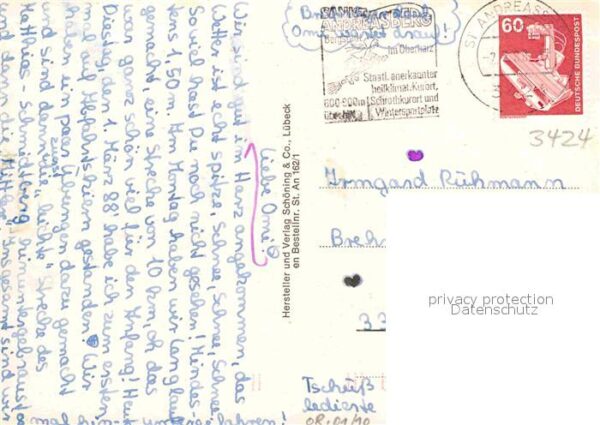 Liebe Omi!
Wir sind gut im Harz angekommen, das
Wetter ist echt spitze, Schnee, Schnee, Schnee
Soviel hast Du noch nicht gesehen! Mindes-
tens 1,50 m. Am Montag haben wir Langlauf
gemacht eine Strecke von 10 km, ich das
ganz schön viel für den Anfang! Heute
Dienstag, den 1. März 88' habe ich zum ersten
auf Abfahrtskiern gestanden! Wir
ein paar Übungen dazu gemacht
und sind dann die "leichte" Strecke des
Matthias-Schmidtberg hinuntergebraust
und dann die Mittlere, insgesamt sind wir
mal hin- und
fahren!
Tschüß
Hersteller und Verlag Schöning & Co., Lübeck
en Bestellnr. St. An 162/1
Bri
Omi wartet drauf!
ANDREASBERG
Bergstadt
im Oberharz
Staatl. anerkannter
heilklimat. Kurort,
600-900m Schrothkurort und
über NN Wintersportplatz
ST ANDREASB
60
DEUTSCHE BUNDESPOST
3424
Irmgard Rühmann
Breh
33
privacy protection
Datenschutz